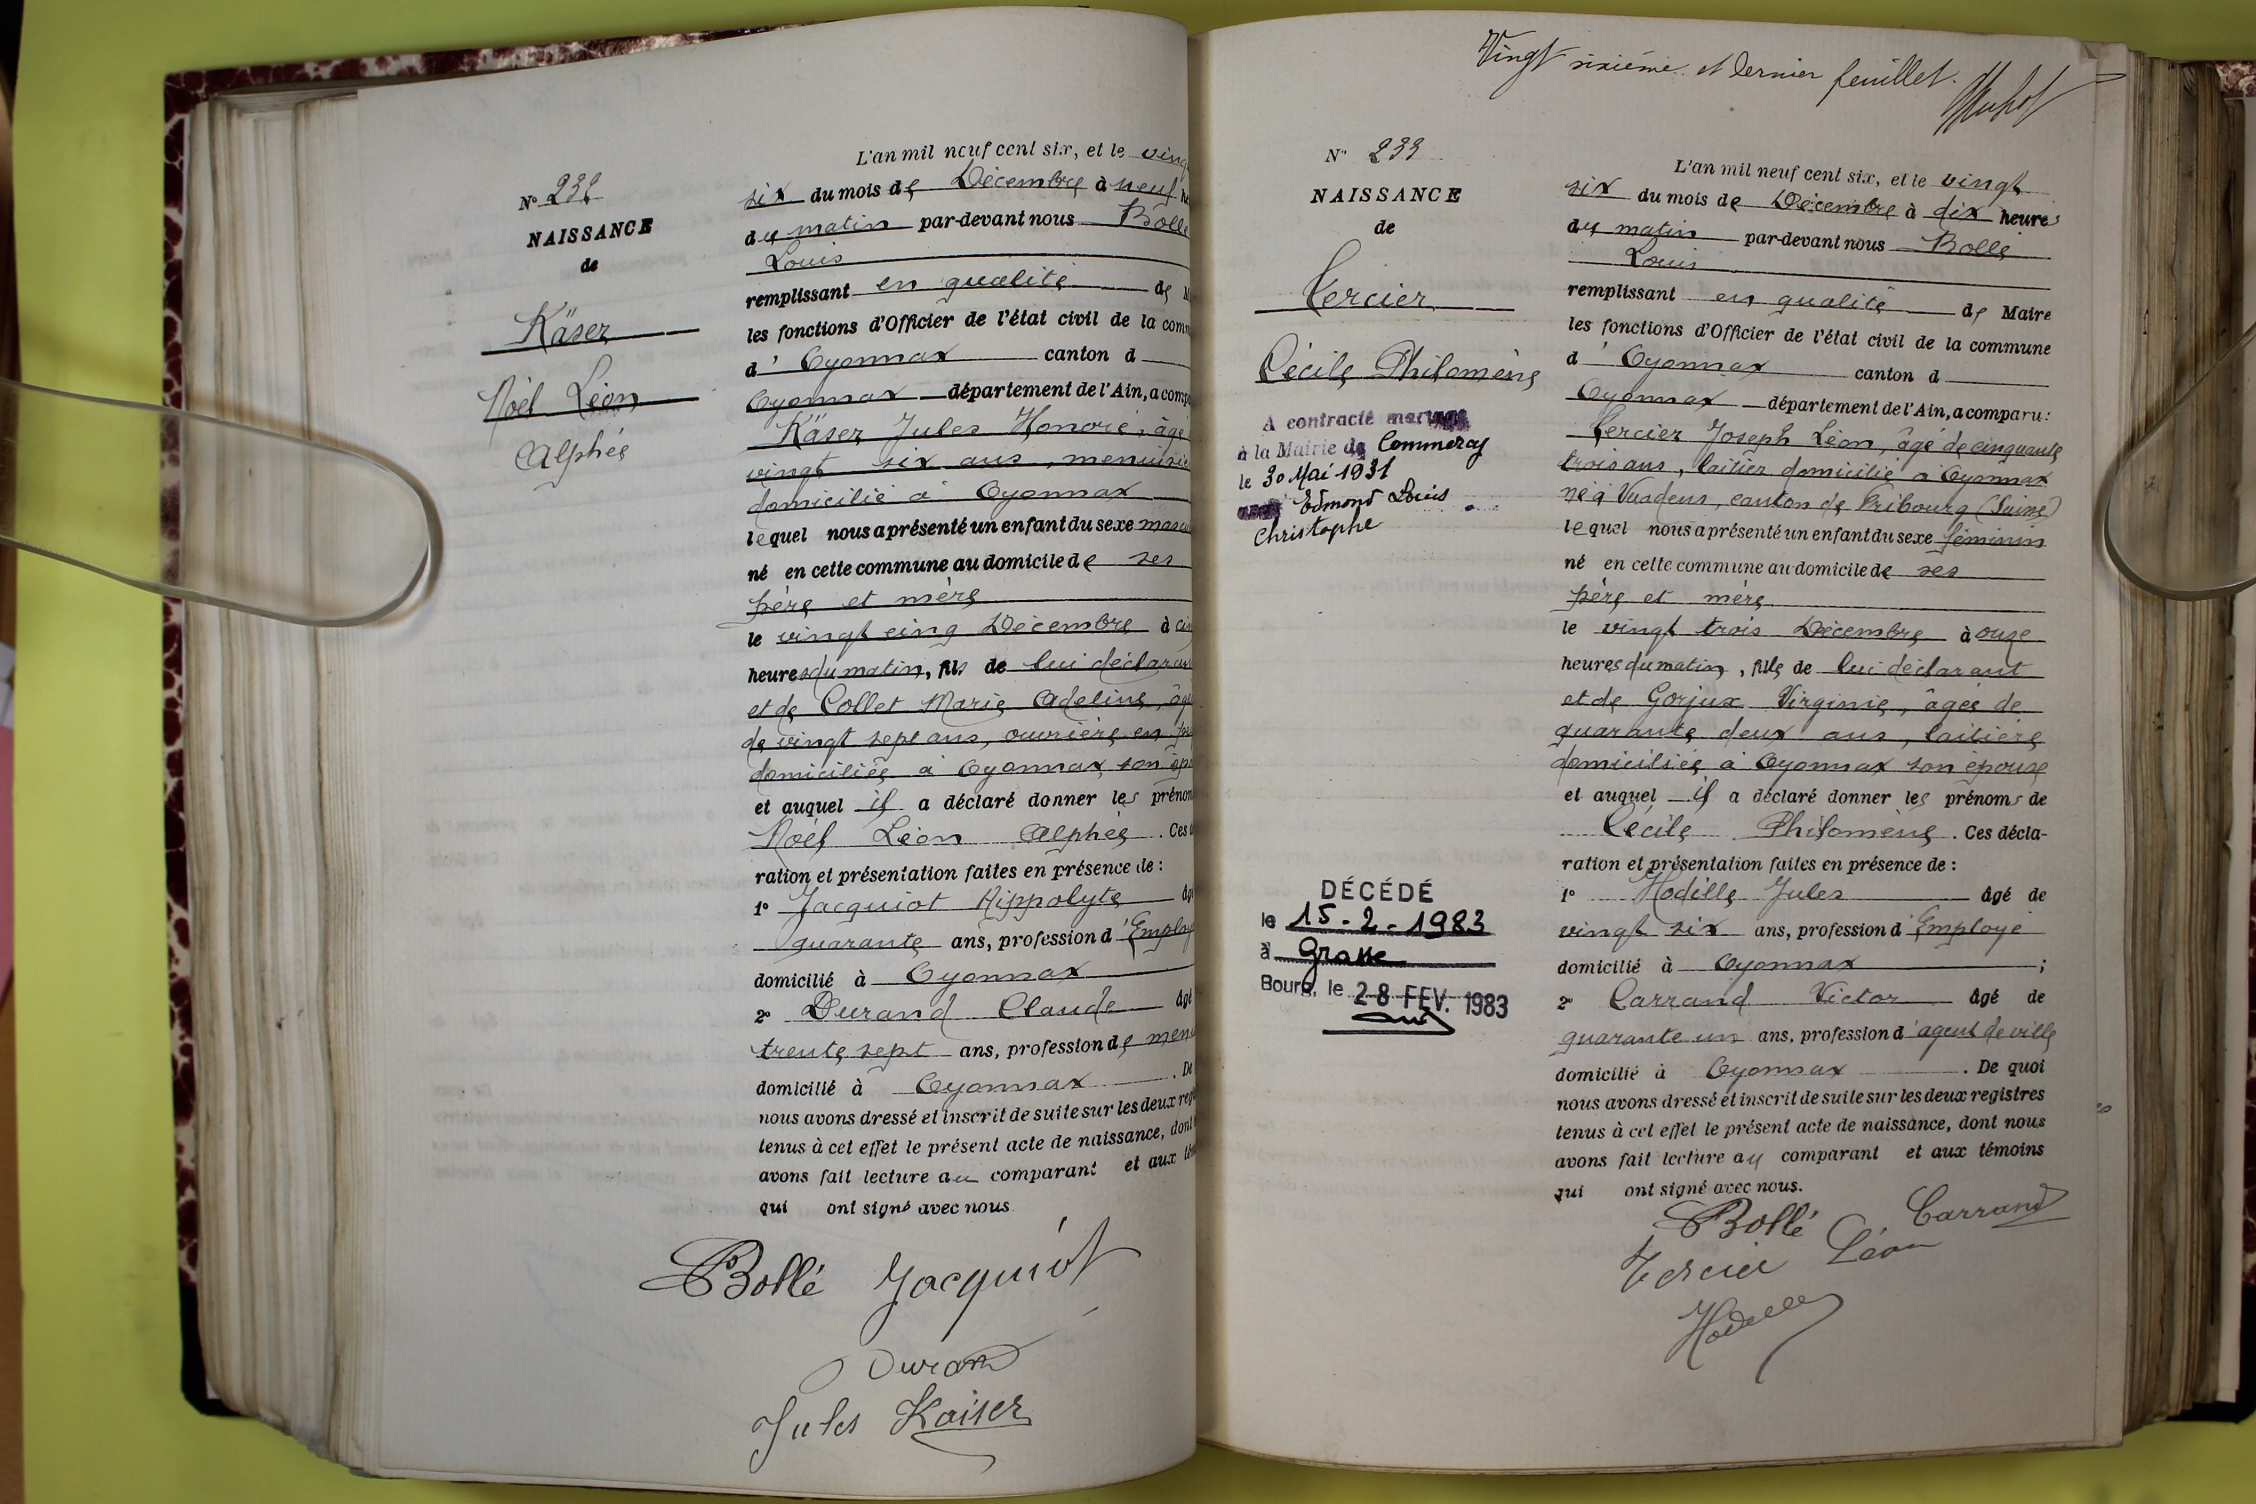 N° 232
NAISSANCE
de
Käser
Noël Léon
Alphée
L'an mil neuf cent six, et le ving
six du mois de Décembre à neuf he
du matin par-devant nous Bollé
Louis
remplissant en qualité de M
les fonctions d'Officier de l'état civil de la comm
d' Oyonnax canton d
Oyonnax département de l'Ain, a comp
Käser Jules Honoré, âgé
vingt six ans, menuisie
domicilié à Oyonnax
lequel nous a présenté un enfant du sexe mascu
né en cette commune au domicile de ses
père et mère
le vingt cinq Décembre à cin
heures du matin, fils de lui déclaran
et de Collet Marie Adeline, âgé
de vingt sept ans, ouvrière en
domiciliée à Oyonnax son épo
et auquel il a déclaré donner les prénom
Noël Léon Alphée. Ces d
ration et présentation faites en présence de :
1° Jacquiot Hippolyte âgé
quarante ans, profession d'Employ
domicilié à Oyonnax
2° Durand Claude âgé
trente sept ans, profession de menu
domicilié à Oyonnax. De
nous avons dressé et inscrit de suite sur les deux regi
tenus à cet effet le présent acte de naissance, dont
avons fait lecture au comparant et aux tém
qui ont signé avec nous.
Bollé Jacquiot
Durand
Jules Kaiser
Vingt sixième et dernier feuillet.
N° 233
NAISSANCE
de
Tercier
Cécile Philomène
A contracté mariage
à la Mairie de Commercy
le 30 Mai 1931
avec Edmond Louis
Christophe
DÉCÉDÉ
le 15-2-1983
à Grasse
Bourg, le 28 FEV. 1983
L'an mil neuf cent six, et le vingt
six du mois de Décembre à dix heures
du matin par-devant nous Bollé
Louis
remplissant en qualité de Maire
les fonctions d'Officier de l'état civil de la commune
d' Oyonnax canton d
Oyonnax département de l'Ain, a comparu :
Tercier Joseph Léon, âgé de cinquante
trois ans, laitier domicilié à Oyonnax
né à Vuadens, canton de Fribourg (Suisse)
lequel nous a présenté un enfant du sexe féminin
né en cette commune au domicile de ses
père et mère
le vingt trois Décembre à onze
heures du matin, fille de lui déclarant
et de Gorjux Virginie, âgée de
quarante deux ans, laitière
domiciliée à Oyonnax son épouse
et auquel il a déclaré donner les prénoms de
Cécile Philomène. Ces décla-
ration et présentation faites en présence de :
1° Hodille Jules âgé de
vingt six ans, profession d'Employé
domicilié à Oyonnax ;
2° Carrand Victor âgé de
quarante un ans, profession d'agent de ville
domicilié à Oyonnax. De quoi
nous avons dressé et inscrit de suite sur les deux registres
tenus à cet effet le présent acte de naissance, dont nous
avons fait lecture au comparant et aux témoins
qui ont signé avec nous.
Bollé Carrand
Tercier Léon
Hodille